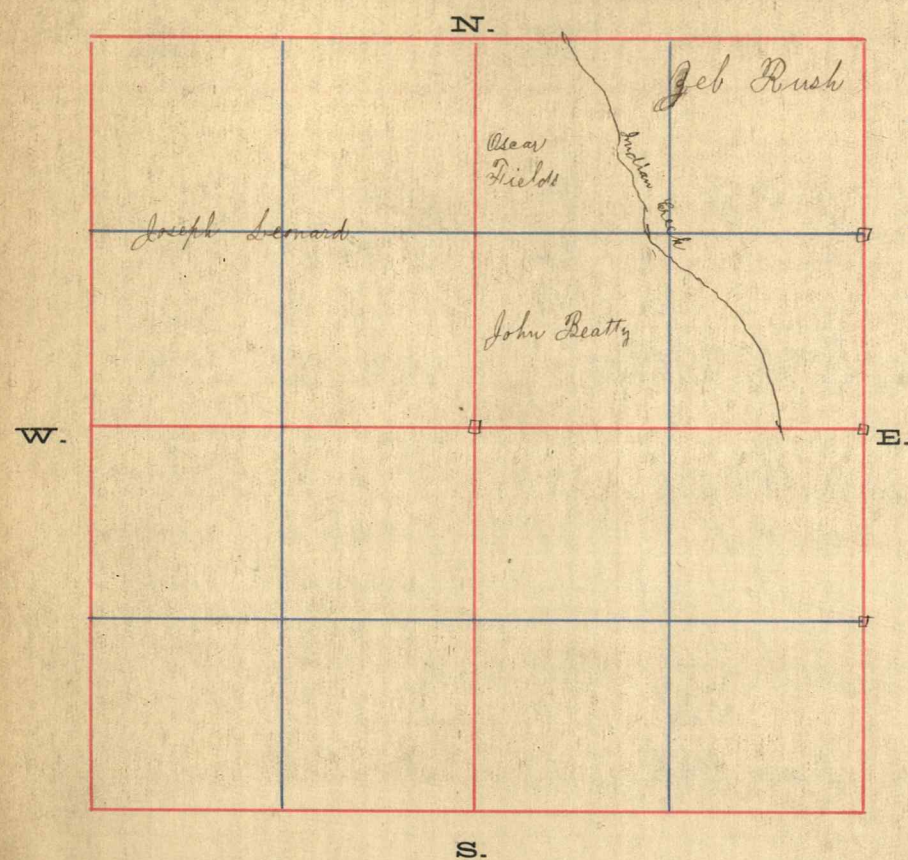 N.
Zeb Rush
Oscar
Fields
Indian Creek
Joseph Leonard
John Beatty
W.
E.
S.